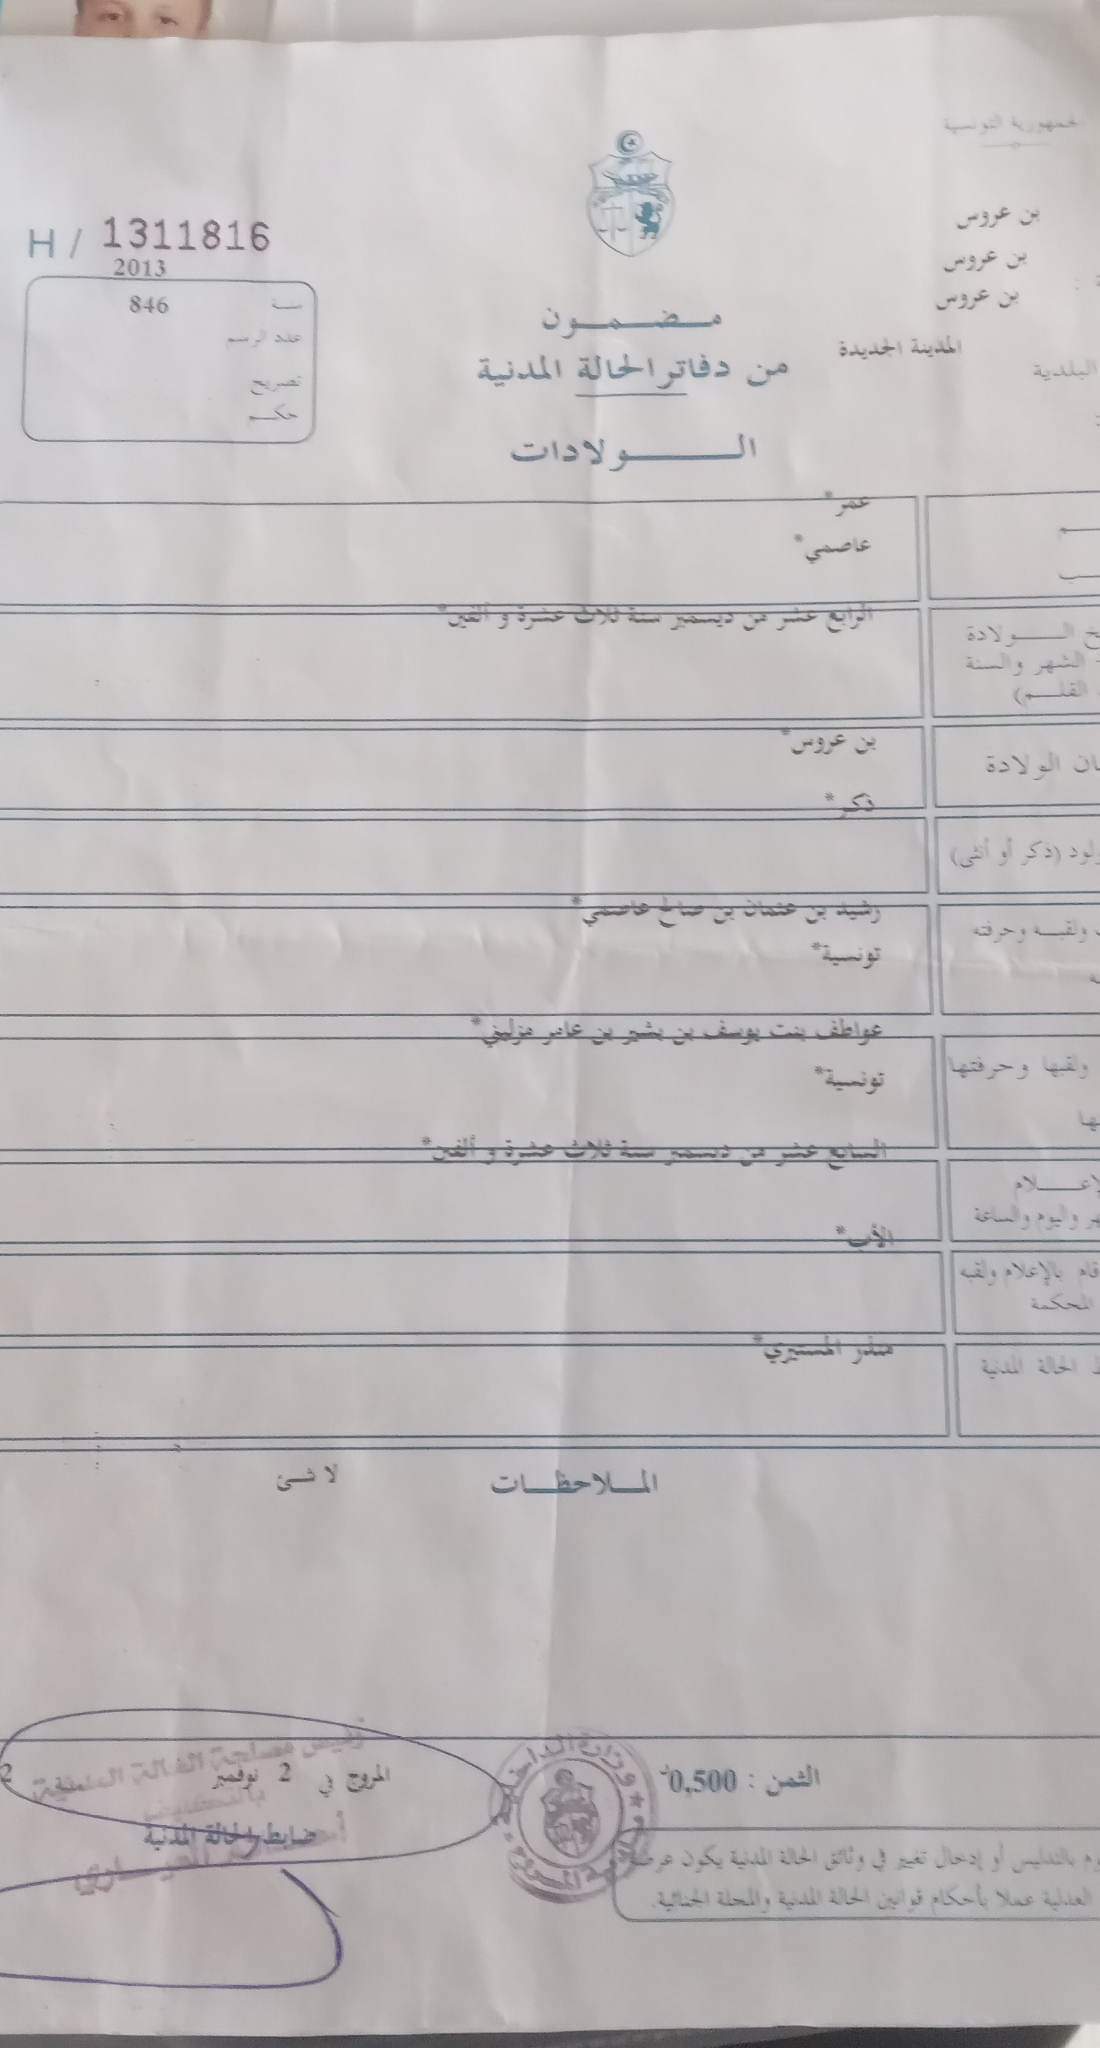 الجمهورية التونسية
بن عروس
بن عروس
بن عروس
المدينة الجديدة
البلدية
H / 1311816
2013
سنة 846
عدد الرسم
تصريح
حكم
مضمون
من دفاتر الحالة المدنية
الولادات
عمر*
عاصمي*
الرابع عشر من ديسمبر سنة ثلاث عشرة و ألفين*
الولادة
الشهر والسنة
القلم)
بن عروس*
الولادة
ذكر*
(ذكر أو أنثى)
رشيد بن عثمان بن صالح عاصمي*
ولقبه وحرفته
تونسية*
عواطف بنت يوسف بن بشير بن عامر مزليني*
ولقبها وحرفتها
تونسية*
السابع عشر من ديسمبر سنة ثلاث عشرة و ألفين*
واليوم والساعة
الأب*
بالإعلام ولقبه
المحكمة
منذر المستيري*
الحالة المدنية
الملاحظات لا شئ
الثمن : 0,500
المروج في 2 نوفمبر 2
ضابط الحالة المدنية
بالتدليس أو إدخال تغيير في وثائق الحالة المدنية يكون عرضة
العدلية عملا بأحكام قوانين الحالة المدنية والمجلة الجنائية.